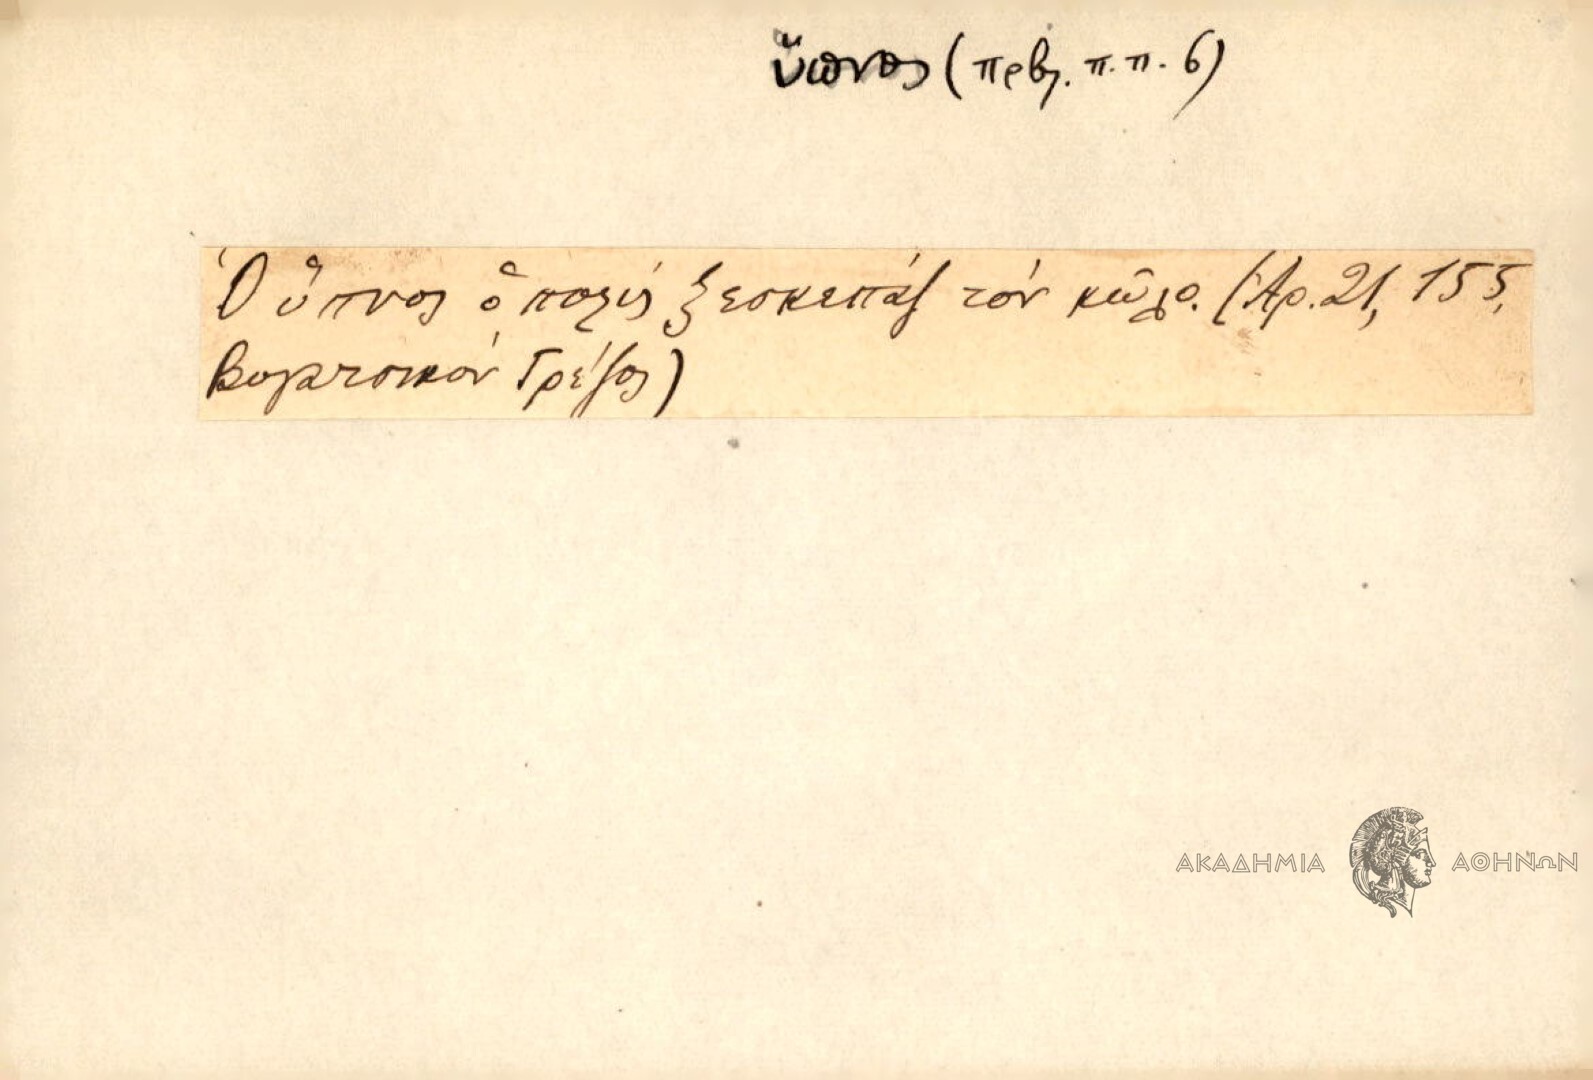 ὕπνος (πρβλ. π.π. 6)
Ὁ ὕπνος ὁ πολὺς ξεσκεπάζ τὸν κῶλο. (Ἀρ. 21, 155,
Βογατσικὸν Γρέζος)
ΑΚΑΔΗΜΙΑ ΑΘΗΝΩΝ